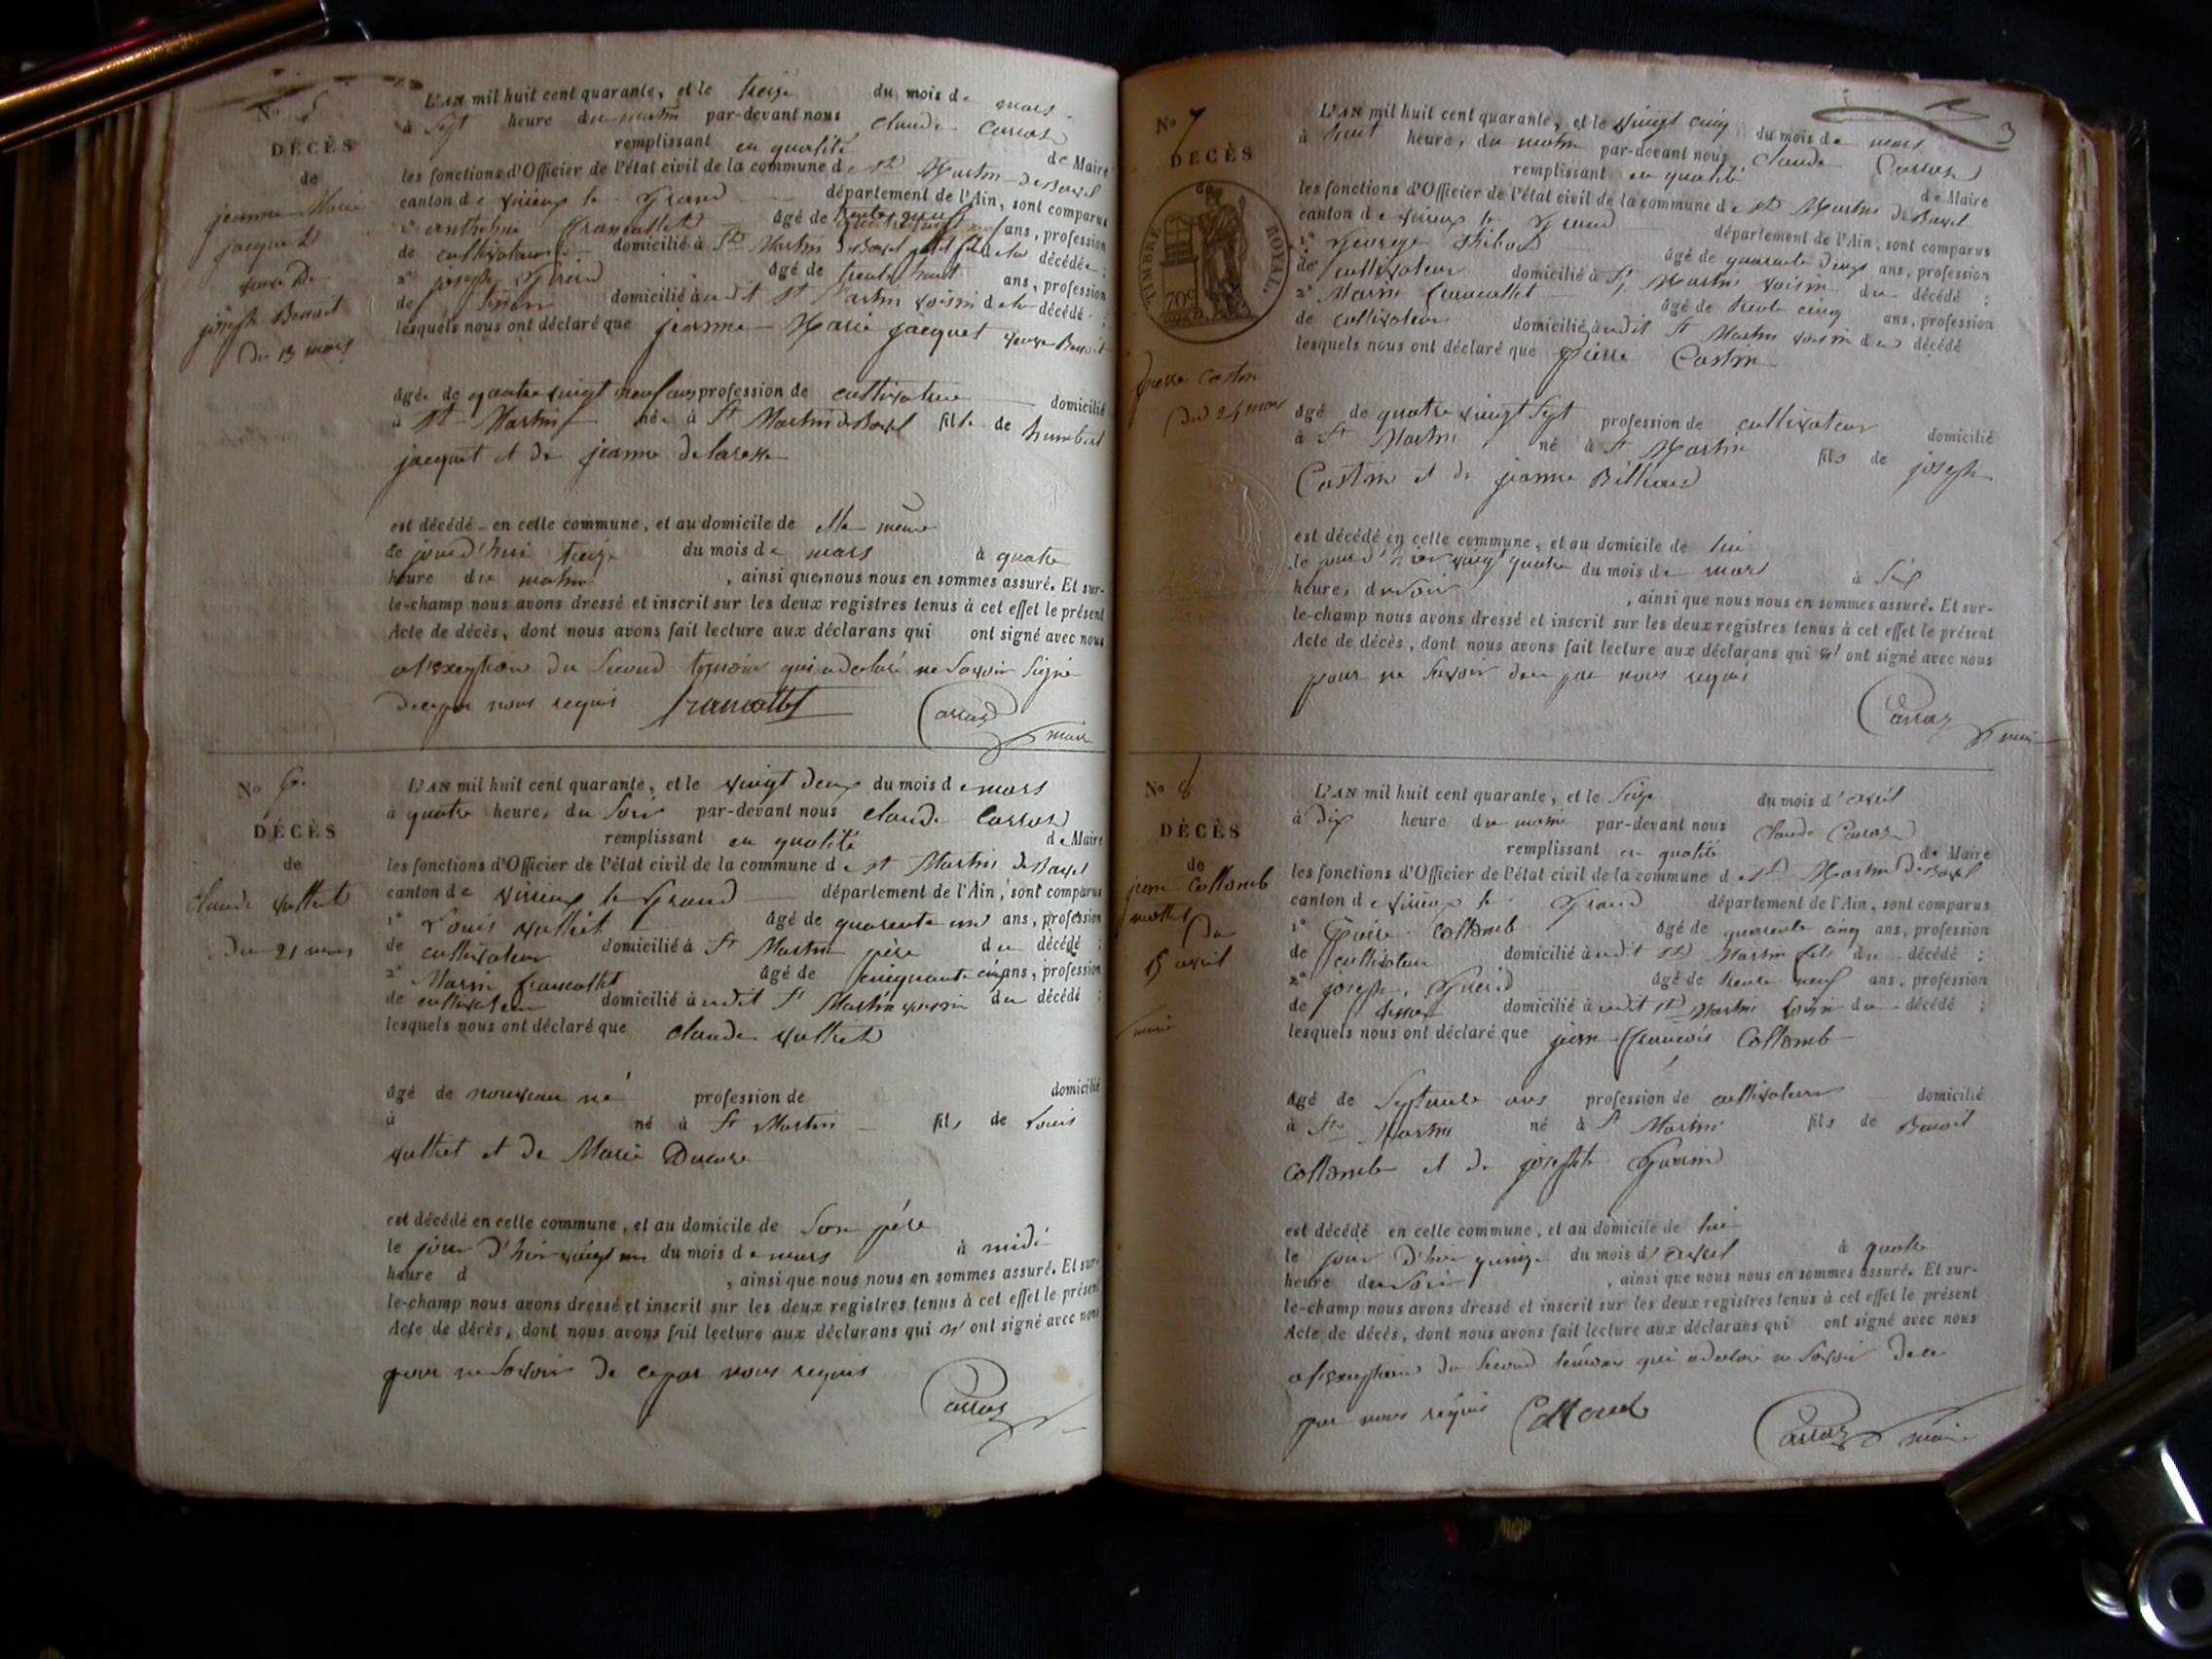 No 5
DÉCÈS
de
jeanne Marie
jacquet
veuve De
joseph Benoit
Du 13 mars
L'AN mil huit cent quarante, et le treize du mois de mars
à sept heure du matin par-devant nous Claude Carraz
remplissant en qualité de Maire
les fonctions d'Officier de l'état civil de la commune de St Martin de Bavel
canton de virieux le Grand département de l'Ain, sont comparus
1° anthelme francallet âgé de ans, profession
de cultivateur domicilié à St Martin de Bavel petit fils de la décédée ;
2° joseph âgé de trente neuf ans, profession
de domicilié à udit St Martin voisin de la décédée ;
lesquels nous ont déclaré que jeanne Marie jacquet veuve Benoit
âgée de quatre vingt neuf ans profession de cultivatrice domicilié
à St Martin née à St Martin de Bavel fille de humbert
jacquet et de jeanne
est décédé en celle commune, et au domicile de elle même
le jourd'hui treize du mois de mars à quatre
heure du matin , ainsi que nous nous en sommes assuré. Et sur-
le-champ nous avons dressé et inscrit sur les deux registres tenus à cet effet le présent
Acte de décès, dont nous avons fait lecture aux déclarans qui ont signé avec nous
a l'exception du second temoin qui a declaré ne savoir signé
de ce par nous requis francallet Carraz maire
No 6.
DÉCÈS
de
Claude vulliet
Du 21 mars
L'AN mil huit cent quarante, et le vingt deux du mois de mars
à quatre heure, du soir par-devant nous Claude Carraz
remplissant en qualité de Maire
les fonctions d'Officier de l'état civil de la commune de St Martin de Bavel
canton de virieux le Grand département de l'Ain, sont comparus
1° Louis vulliet âgé de quarante un ans, profession
de cultivateur domicilié à St Martin père du décédé ;
2° Marin francallet âgé de cinquante cinq ans, profession
de cultivateur domicilié à udit St Martin voisin du décédé ;
lesquels nous ont déclaré que Claude vulliet
âgé de nouveau né profession de domicilié
à né à St Martin fils de Louis
vulliet et de Marie
est décédé en celle commune, et au domicile de son père
le jour d'hier vingt un du mois de mars à midi
heure d , ainsi que nous nous en sommes assuré. Et sur-
le-champ nous avons dressé et inscrit sur les deux registres tenus à cet effet le présent
Acte de décès, dont nous avons fait lecture aux déclarans qui n' ont signé avec nous
pour ne savoir de ce par nous requis
Carraz
3
No 7
DÉCÈS
de
TIMBRE ROYAL.
70c
pierre Costin
Du 24 mars
L'AN mil huit cent quarante, et le vingt cinq du mois de mars
à huit heure, du matin par-devant nous Claude Carraz
remplissant en qualité de Maire
les fonctions d'Officier de l'état civil de la commune de St Martin de Bavel
canton de virieux le Grand département de l'Ain, sont comparus
1° George âgé de quarante deux ans, profession
de cultivateur domicilié à St Martin voisin du décédé ;
2° Marin francallet âgé de trente cinq ans, profession
de cultivateur domicilié à udit St Martin voisin du décédé
lesquels nous ont déclaré que pierre Costin
âgé de quatre vingt sept profession de cultivateur domicilié
à St Martin né à St Martin fils de joseph
Costin et de jeanne Billiard
est décédé en celle commune, et au domicile de lui
le jour d'hier vingt quatre du mois de mars à six
heure, du soir , ainsi que nous nous en sommes assuré. Et sur-
le-champ nous avons dressé et inscrit sur les deux registres tenus à cet effet le présent
Acte de décès, dont nous avons fait lecture aux déclarans qui n' ont signé avec nous
pour ne savoir de ce par nous requis
Carraz maire
No 8
DÉCÈS
de
jean Collomb
Du
15 avril
L'AN mil huit cent quarante, et le seize du mois d'avril
à dix heure du matin par-devant nous Claude Carraz
remplissant en qualité de Maire
les fonctions d'Officier de l'état civil de la commune de St Martin de Bavel
canton de virieux le Grand département de l'Ain, sont comparus
1° Collomb âgé de quarante cinq ans, profession
de cultivateur domicilié à udit St Martin fils du décédé ;
2° joseph âgé de trente neuf ans, profession
de domicilié à udit St Martin voisin du décédé ;
lesquels nous ont déclaré que jean françois Collomb
âgé de septante ans profession de cultivateur domicilié
à St Martin né à St Martin fils de Benoit
Collomb et de josephte
est décédé en celle commune, et au domicile de lui
le jour d'hier quinze du mois d'avril à quatre
heure du soir , ainsi que nous nous en sommes assuré. Et sur-
le-champ nous avons dressé et inscrit sur les deux registres tenus à cet effet le présent
Acte de décès, dont nous avons fait lecture aux déclarans qui ont signé avec nous
a l'exception du second temoin qui a declaré ne savoir de ce
par nous requis Collomb Carraz maire